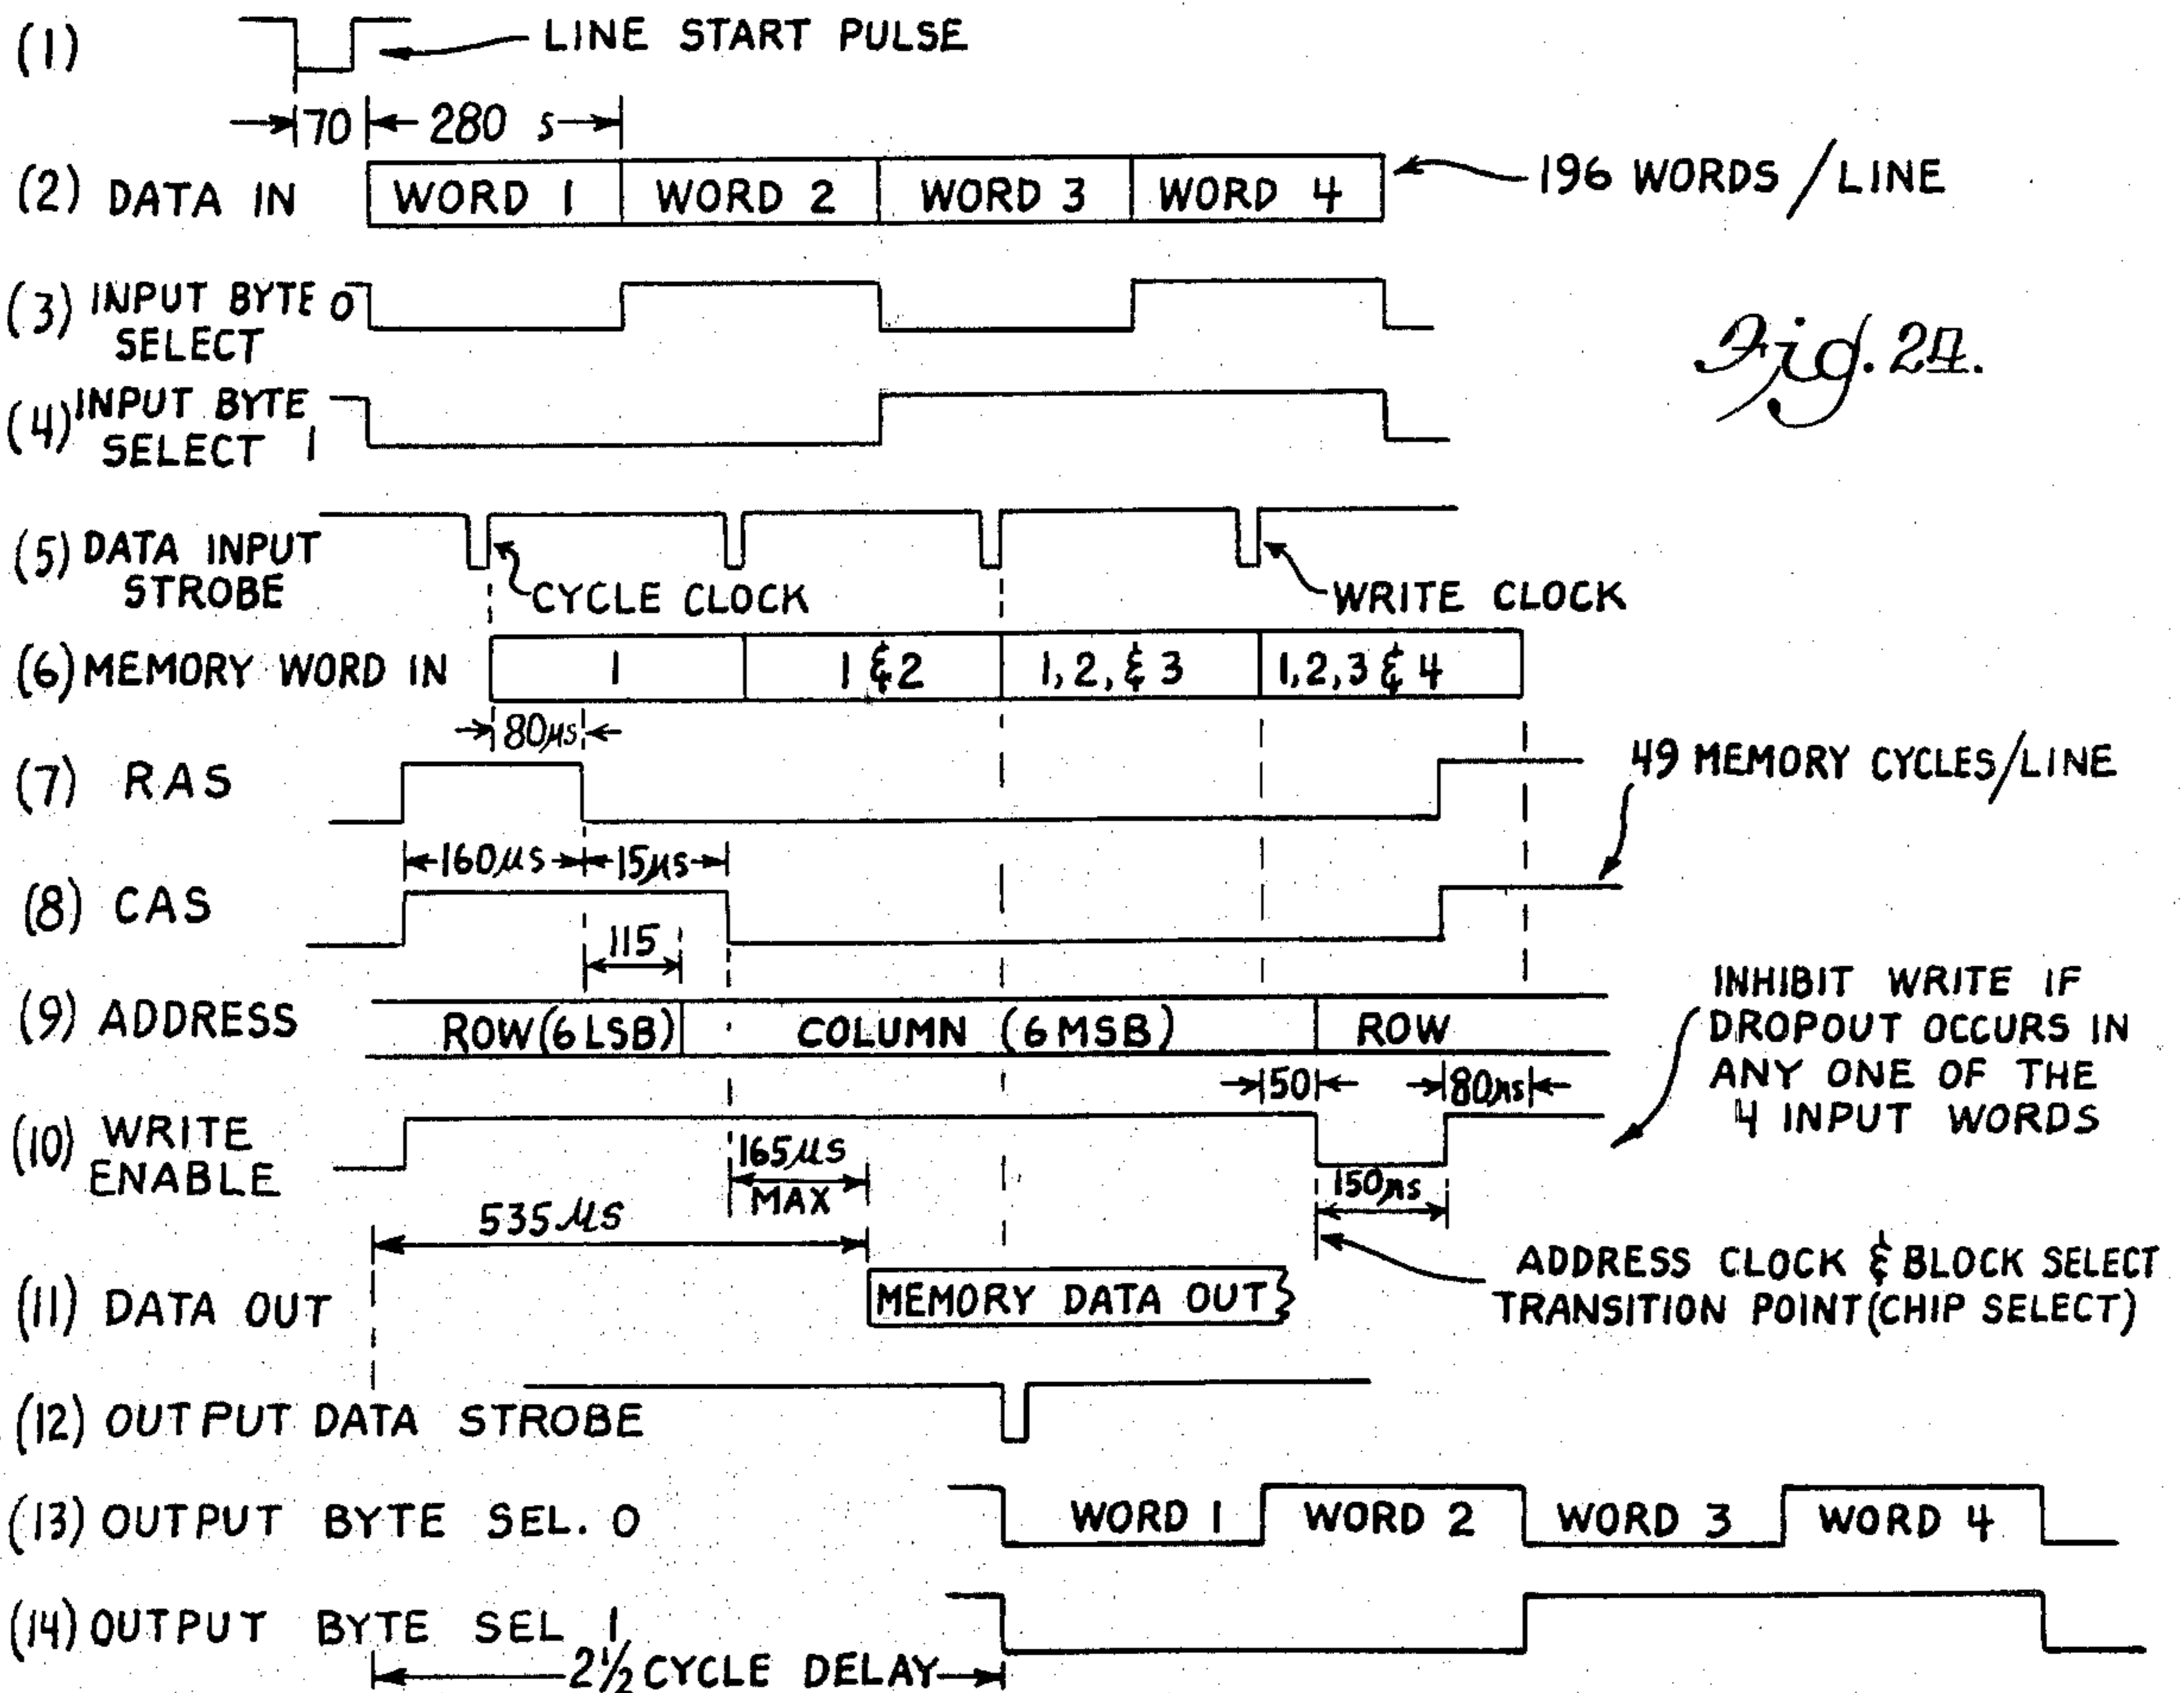 (1) LINE START PULSE
70 280 s
(2) DATA IN WORD 1 WORD 2 WORD 3 WORD 4 196 WORDS / LINE
(3) INPUT BYTE 0
SELECT
Fig. 24.
(4) INPUT BYTE
SELECT 1
(5) DATA INPUT
STROBE
CYCLE CLOCK
WRITE CLOCK
(6) MEMORY WORD IN 1 1 & 2 1, 2, & 3 1, 2, 3 & 4
80μs
(7) RAS
49 MEMORY CYCLES/LINE
160μs 15μs
(8) CAS
115
(9) ADDRESS ROW (6 LSB) COLUMN (6 MSB) ROW
INHIBIT WRITE IF
DROPOUT OCCURS IN
ANY ONE OF THE
4 INPUT WORDS
50 80ns
(10) WRITE
ENABLE
165μs
MAX
150ns
535μs
ADDRESS CLOCK & BLOCK SELECT
TRANSITION POINT (CHIP SELECT)
(11) DATA OUT MEMORY DATA OUT
(12) OUTPUT DATA STROBE
(13) OUTPUT BYTE SEL. 0 WORD 1 WORD 2 WORD 3 WORD 4
(14) OUTPUT BYTE SEL 1
2½ CYCLE DELAY